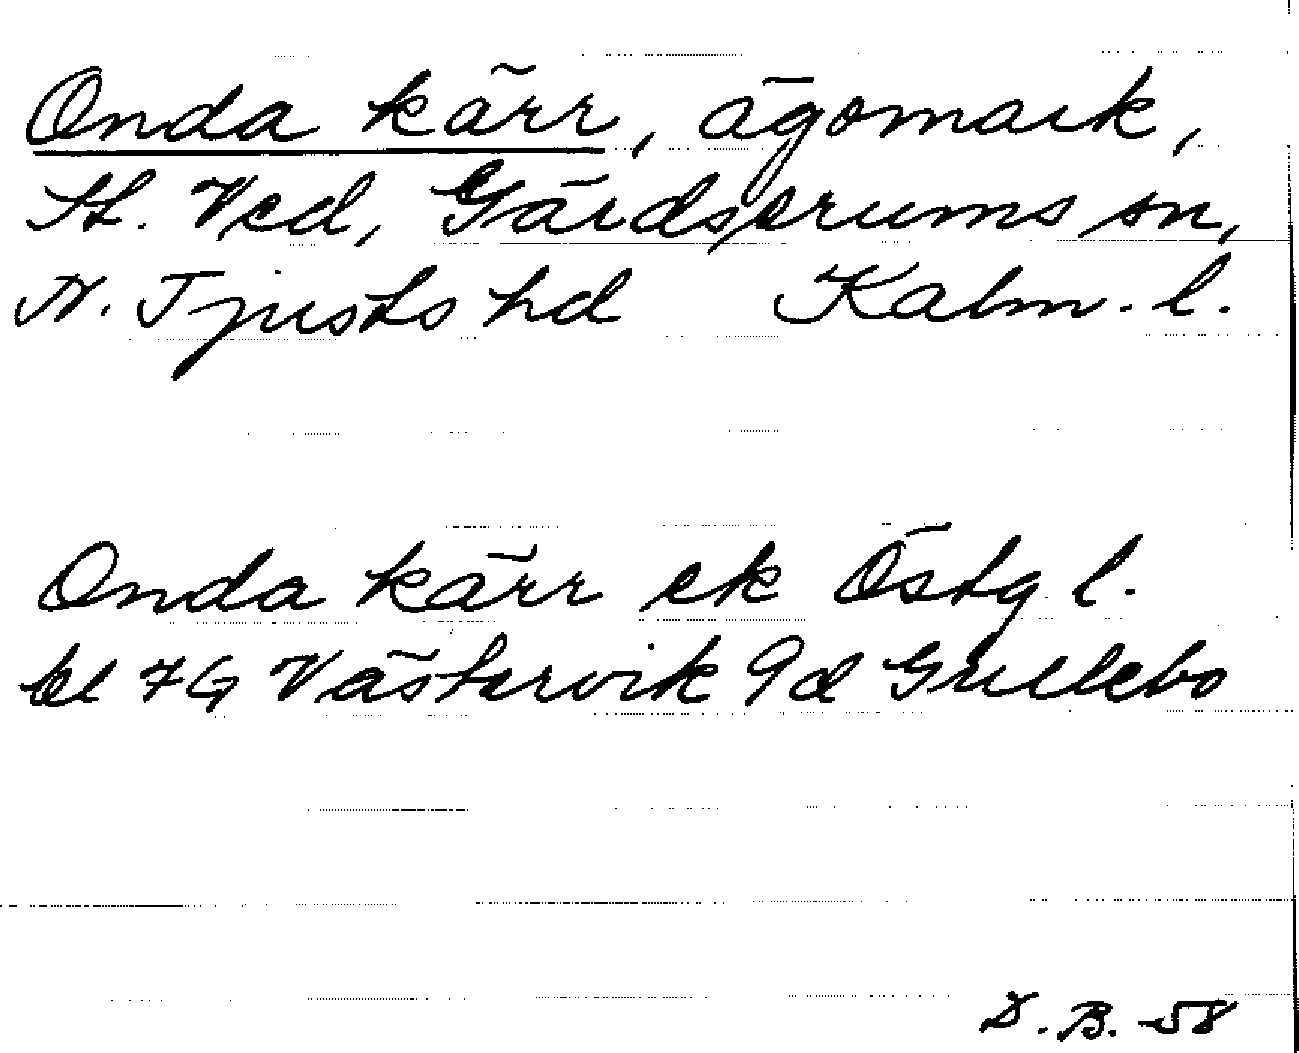 Onda kärr, ägomark,
St. Ved, Gärdserums sn,
N. Tjusts hd Kalm. l.
Onda kärr ek Östg l.
bl 7G Västervik 9d Gullebo
D. B. -58